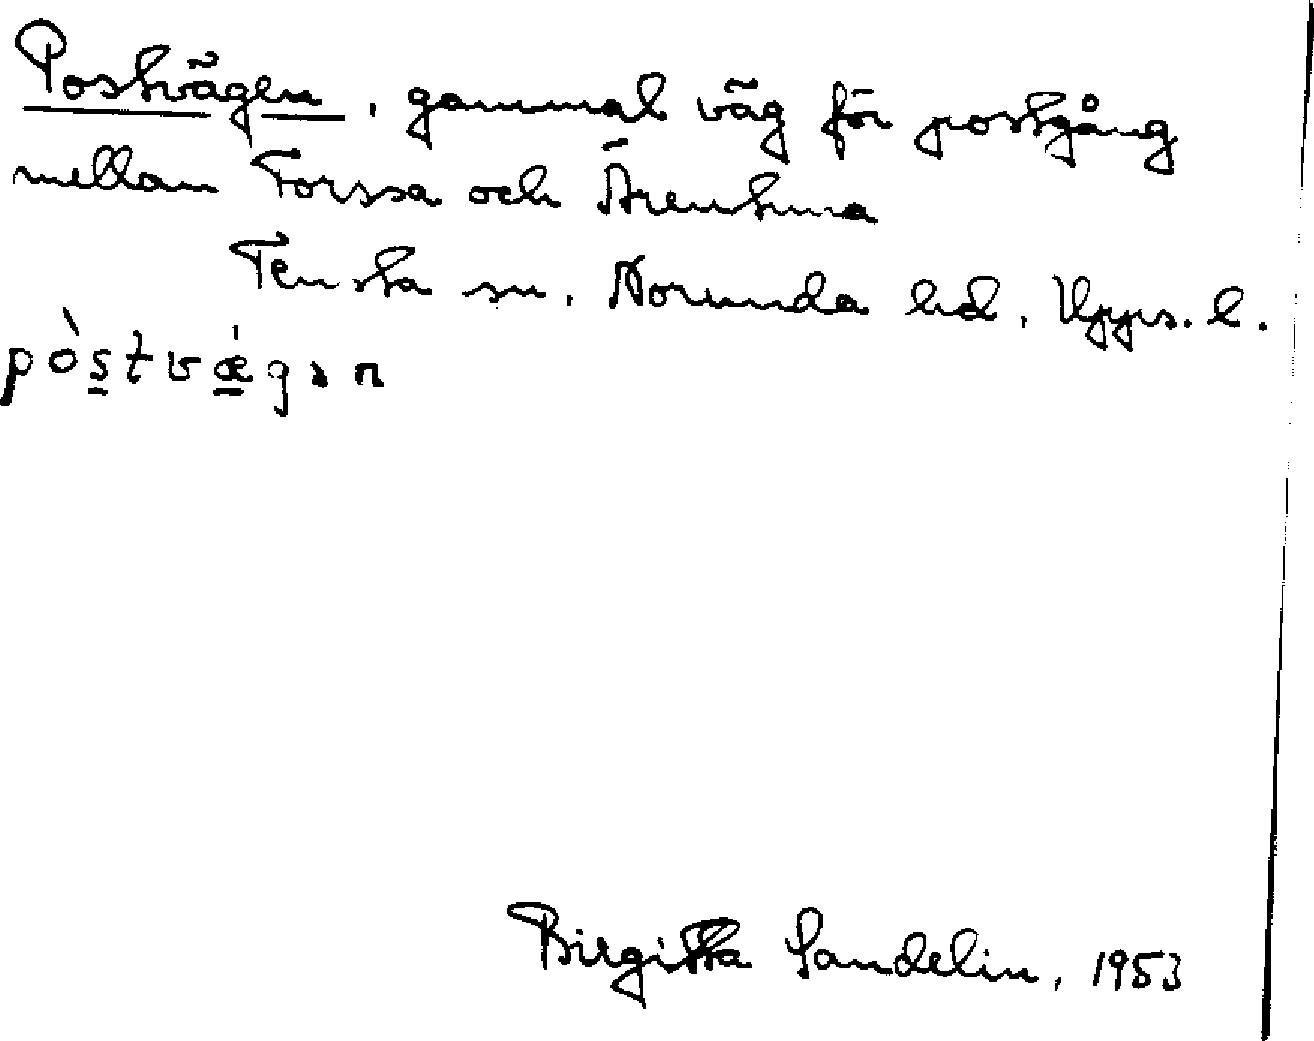 Postvägen, gammal väg för postgång
mellan Forssa och Ärentuna
Tensta sn, Norunda hd, Upps. l.
pòs̲tvǽ̲gən
Birgitta Sandelin, 1953